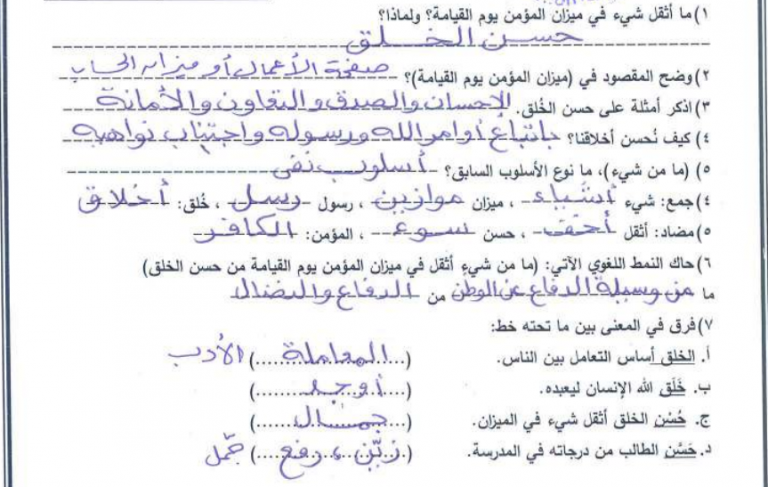 ١) ما أثقل شيء في ميزان المؤمن يوم القيامة؟ ولماذا؟
حسن الخلق
٢) وضح المقصود في (ميزان المؤمن يوم القيامة)؟ صفحة الأعمال أو ميزان الحساب
٣) اذكر أمثلة على حسن الخُلق. الإحسان والصدق والتعاون والأمانة
٤) كيف نُحسن أخلاقنا؟ باتباع أوامر الله ورسوله واجتناب نواهيه
٥) (ما من شيء)، ما نوع الأسلوب السابق؟ أسلوب نفي
٤) جمع: شيء أشياء ، ميزان موازين ، رسول رسل ، خُلق: أخلاق
٥) مضاد: أثقل أخف ، حسن سوء ، المؤمن: الكافر
٦) حاك النمط اللغوي الآتي: (ما من شيءٍ أثقل في ميزان المؤمن يوم القيامة من حسن الخلق)
ما من وسيلة الدفاع عن الوطن من الدفاع والنضال
٧) فرق في المعنى بين ما تحته خط:
أ. الخلق أساس التعامل بين الناس. (المعاملة) الأدب
ب. خَلَق الله الإنسان ليعبده. (أوجد)
ج. حُسْن الخلق أثقل شيء في الميزان. (جمال)
د. حَسَّن الطالب من درجاته في المدرسة. (زيّن ، رفع) جمّل